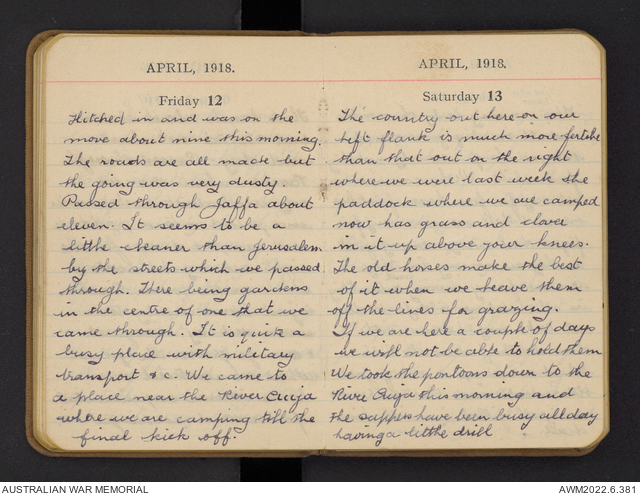 APRIL, 1918.
Friday 12
Hitched in and was on the
move about nine this morning.
The roads are all made but
the going was very dusty.
Passed through Jaffa about
eleven. It seems to be a
little cleaner than Jerusalem
by the streets which we passed
through. There being gardens
in the centre of one that we
came through. It is quite a
busy place with military
transport & c. We came to
a place near the River Auja
where we are camping till the
final kick off.
APRIL, 1918.
Saturday 13
The country out here on our
left flank is much more fertile
than that out on the right
where we were last week the
paddock where we are camped
now has grass and clover
in it up above your knees.
The old horses make the best
of it when we leave them
off the lines for grazing.
If we are here a couple of days
we will not be able to hold them
We took the pontoons down to the
River Auja this morning and
the sappers have been busy all day
having a little drill
AUSTRALIAN WAR MEMORIAL
AWM2022.6.381